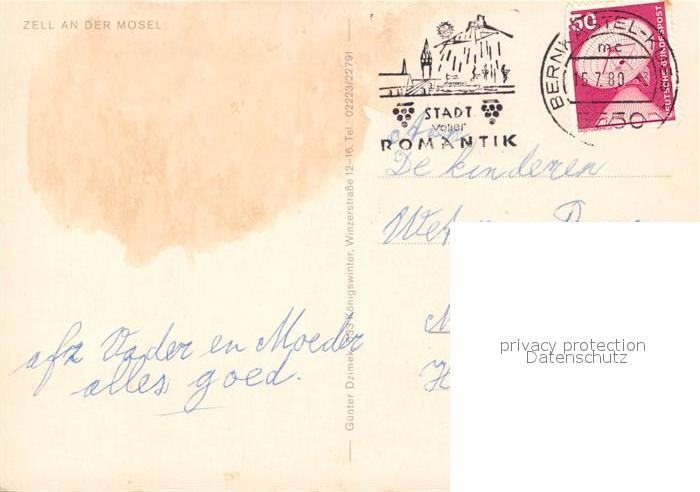 ZELL AN DER MOSEL
STADT
voller
ROMANTIK
BERNKASTEL-K
mc
15.7.80
5550
50
DEUTSCHE BUNDESPOST
Aan
De kinderen
afz Vader en Moeder
alles goed.
Günter Dzimek, 533 Königswinter, Winzerstraße 12–16, Tel.: 02223/22791
privacy protection
Datenschutz